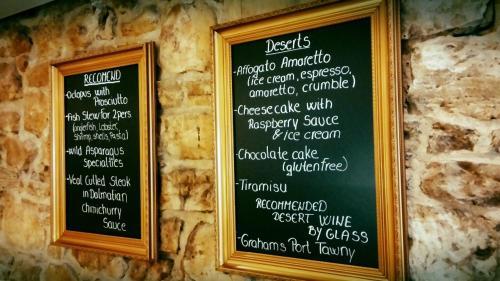 RECOMEND
-Octopus with
Prosciutto
-Fish Stew for 2pers
(anglefish, lobster,
Shrimp, shells, Pasta)
-wild Asparagus
Specialties
-Veal Culled Steak
in Dalmatian
Chimichurry
Sauce
Deserts
-Affogato Amaretto
(ice cream, espresso,
amaretto, crumble)
-Cheesecake with
Raspberry Sauce
& ice cream
-Chocolate cake
(gluten free)
-Tiramisu
RECOMMENDED
DESERT WINE
BY GLASS
-Grahams Port Tawny